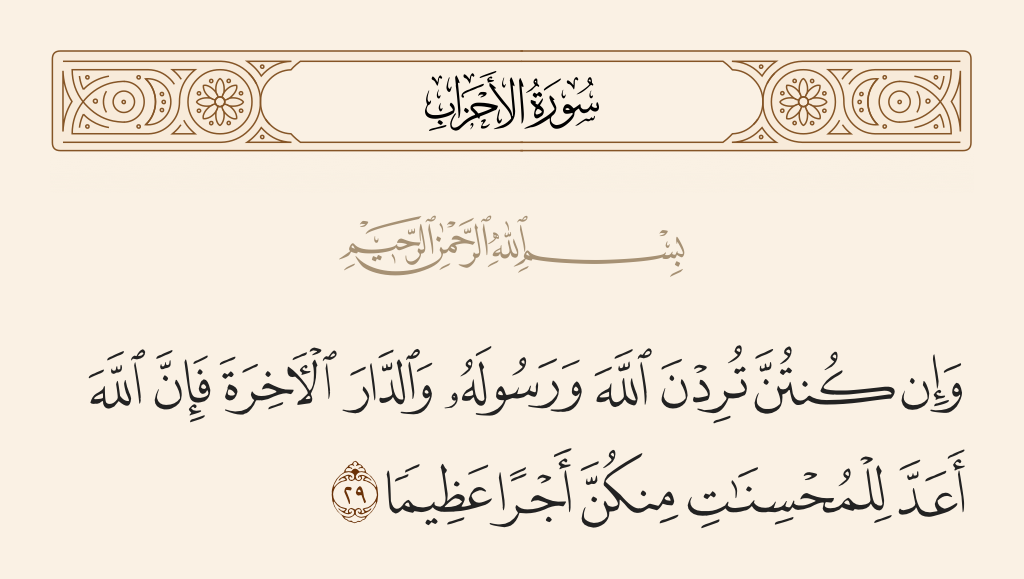 سُورَةُ الأَحْزَابِ
بِسْمِ ٱللَّهِ ٱلرَّحْمَٰنِ ٱلرَّحِيمِ
وَإِن كُنتُنَّ تُرِدْنَ ٱللَّهَ وَرَسُولَهُۥ وَٱلدَّارَ ٱلْـَٔاخِرَةَ فَإِنَّ ٱللَّهَ
أَعَدَّ لِلْمُحْسِنَـٰتِ مِنكُنَّ أَجْرًا عَظِيمًا ٢٩